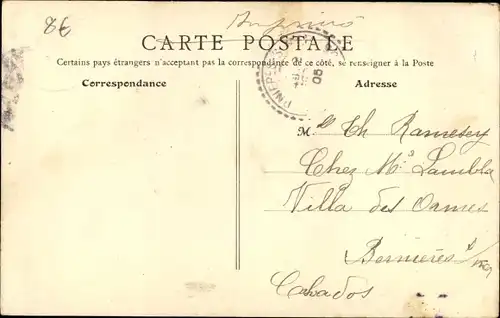 8€
Imprimé
CARTE POSTALE
Certains pays étrangers n'acceptant pas la correspondance de ce côté, se renseigner à la Poste
Correspondance
Adresse
08
M. Th Ramesey
Chez Mr Lambla
Villa des Ormes
Bernières s/mer
Calvados